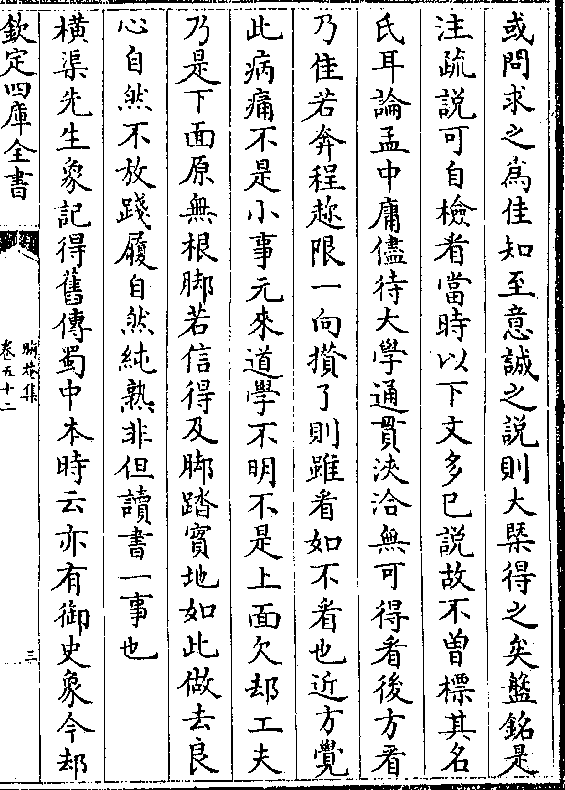 或問求之為佳知至意誠之說則大槩得之矣盤銘是
注疏說可自檢看當時以下文多已說故不曾標其名
氏耳論孟中庸儘待大學通貫浹洽無可得看後方看
乃佳若奔程趂限一向攢了則雖看如不看也近方覺
此病痛不是小事元來道學不明不是上面欠却工夫
乃是下面原無根脚若信得及脚踏實地如此做去良
心自然不放踐履自然純熟非但讀書一事也
橫渠先生象記得舊傳蜀中本時云亦有御史象今却
欽定四庫全書
晦菴集
卷五十二
三